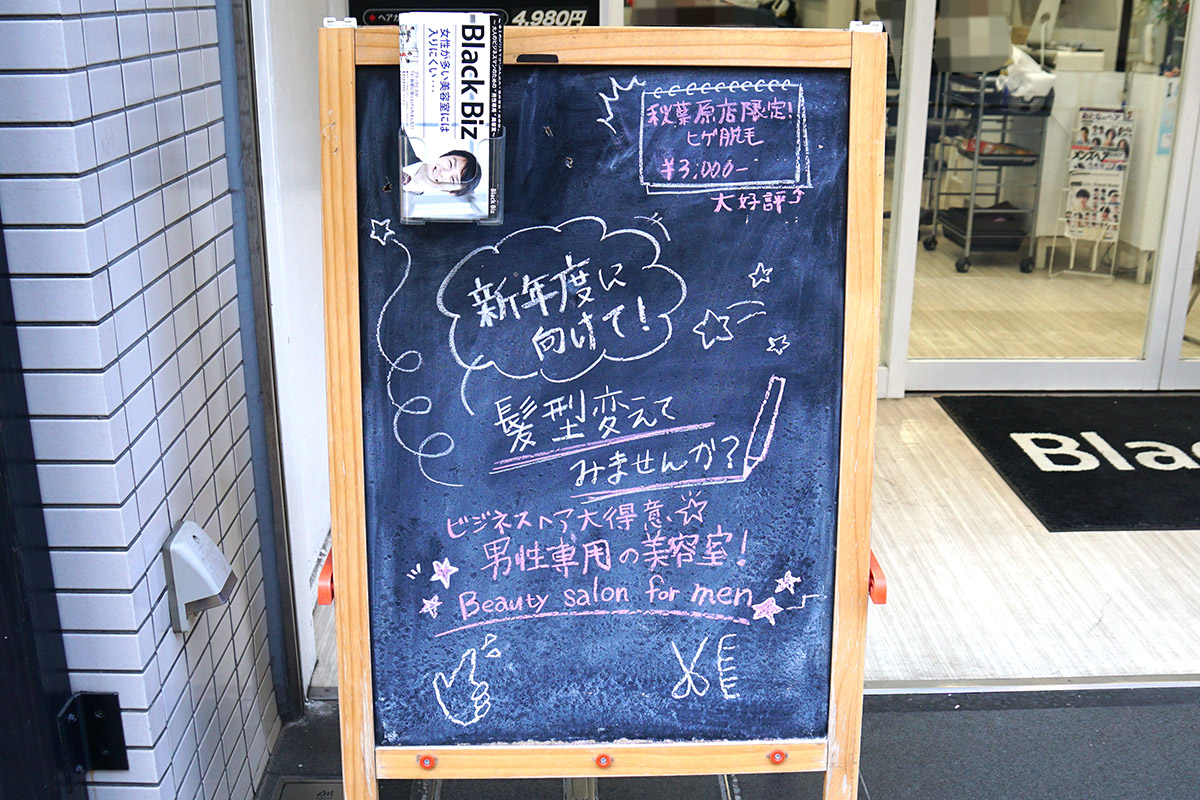 4,980円
Black-Biz
女性が多い美容室には
入りにくい…
Black Biz
秋葉原店限定!
ヒゲ脱毛
¥3,000-
大好評
新年度に
向けて!
髪型変えて
みませんか?
ビジネスヘア大得意☆
男性専用の美容室!
Beauty salon for men
メンズヘア
Bla